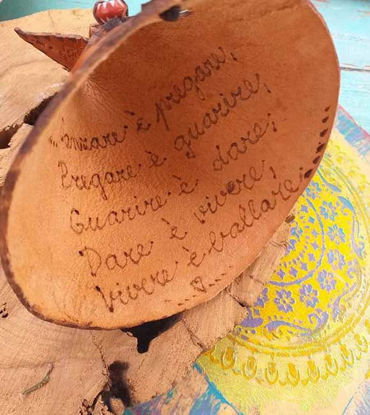 è pregare;
Pregare è guarire;
Guarire è dare;
Dare è vivere;
Vivere è ballare;